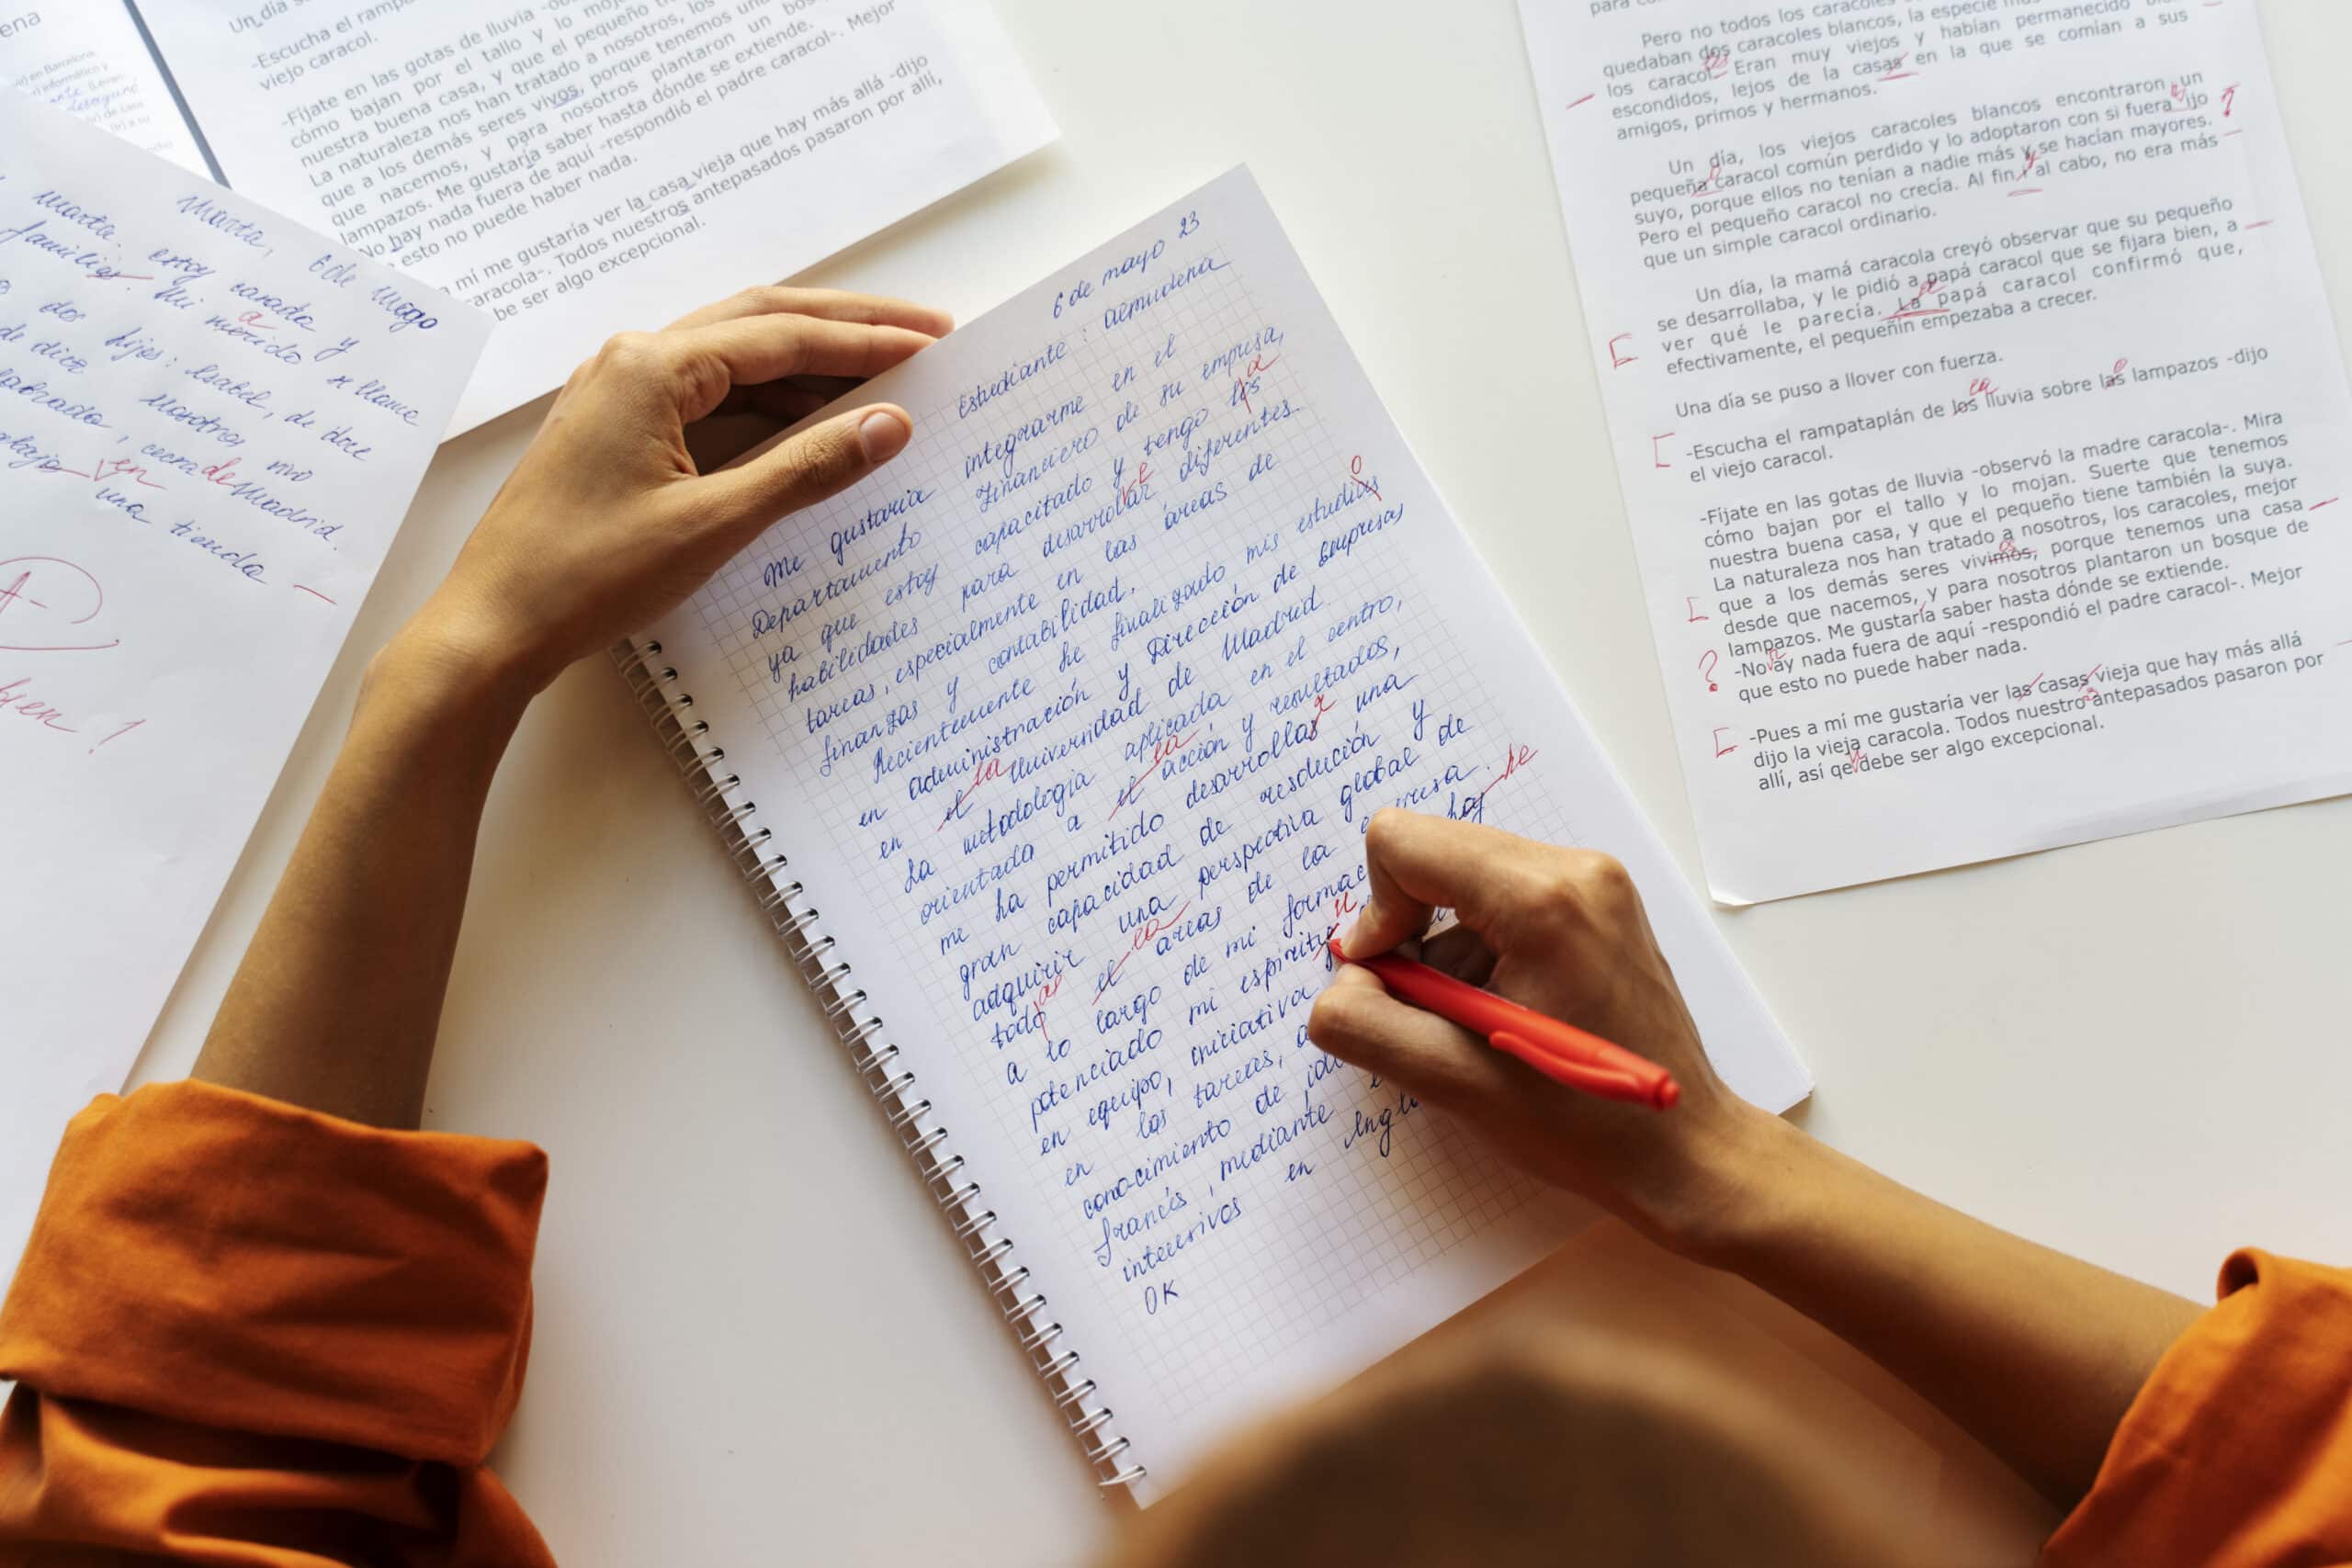 ena
en Barcelona
informático y
Marta, 6 de mayo
Marta. estoy casada y
familiar. Mi morido se llama
a
dos hijos: Isabel, de doce
de diez Nosotros vivo
cerca de Madrid.
en
una tienda
A-
bien!
Un día s
-Escucha el rampa
viejo caracol.
-Fíjate en las gotas de lluvia -ob
cómo bajan por el tallo y lo moj
nuestra buena casa, y que el pequeño
La naturaleza nos han tratado a nosotros, los
que a los demás seres vivos, porque tenemos un
que nacemos, y para nosotros plantaron un bos
lampazos. Me gustaría saber hasta dónde se extiende.
No hay nada fuera de aquí -respondió el padre caracol-. Mejor
esto no puede haber nada.
mí me gustaría ver la casa vieja que hay más allá -dijo
aracola-. Todos nuestros antepasados pasaron por allí,
be ser algo excepcional.
6 de mayo 23
Estudiante: Almudena
Me gustaria integrarme en el
Departamento Financiero de su empresa,
ya que estoy capacitado y tengo los
a
habilidades para desarrollar diferentes
e
tareas, especialmente en las áreas de
finanzas y contabilidad.
Recientemente he finalizado mis estudias
o
en administración y Dirección de Empresas
en el Universidad de Madrid.
la
La metodologia aplicada en el centro,
orientada a el acción y resultados,
la
me ha permitido desarrollas una
r
gran capacidad de resolución y
adquirir una perspectiva global de
todo el areas de la empresa.
as la
a lo largo de mi formac haj
he
potenciado mi espiritu
u
en equipo, iniciativa
en las tareas, a
conocimiento de idi
francés, mediante
intensivos en Ingl
OK
para co
Pero no todos los caracoles
quedaban dos caracoles blancos, la especie más
los caracol. Eran muy viejos y habían permanecido
escondidos, lejos de la casas en la que se comían a sus
amigos, primos y hermanos.
Un día, los viejos caracoles blancos encontraron un
pequeña caracol común perdido y lo adoptaron con si fuera ijo
o ?
suyo, porque ellos no tenían a nadie más y se hacían mayores.
Pero el pequeño caracol no crecía. Al fin al cabo, no era más
y
que un simple caracol ordinario.
Un día, la mamá caracola creyó observar que su pequeño
se desarrollaba, y le pidió a papá caracol que se fijara bien, a
ver qué le parecía. La papá caracol confirmó que,
efectivamente, el pequeñín empezaba a crecer.
Una día se puso a llover con fuerza.
-Escucha el rampataplán de los lluvia sobre las lampazos -dijo
la o
el viejo caracol.
-Fíjate en las gotas de lluvia -observó la madre caracola-. Mira
cómo bajan por el tallo y lo mojan. Suerte que tenemos
nuestra buena casa, y que el pequeño tiene también la suya.
La naturaleza nos han tratado a nosotros, los caracoles, mejor
que a los demás seres vivimos, porque tenemos una casa
os
desde que nacemos, y para nosotros plantaron un bosque de
lampazos. Me gustaría saber hasta dónde se extiende.
? -No ay nada fuera de aquí -respondió el padre caracol-. Mejor
que esto no puede haber nada.
-Pues a mí me gustaría ver las casas vieja que hay más allá
dijo la vieja caracola. Todos nuestro antepasados pasaron por
allí, así qe debe ser algo excepcional.